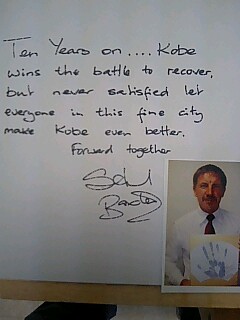 Ten Years on .... Kobe
wins the battle to recover,
but never satisfied let
everyone in this fine city
make Kobe even better.
Forward together